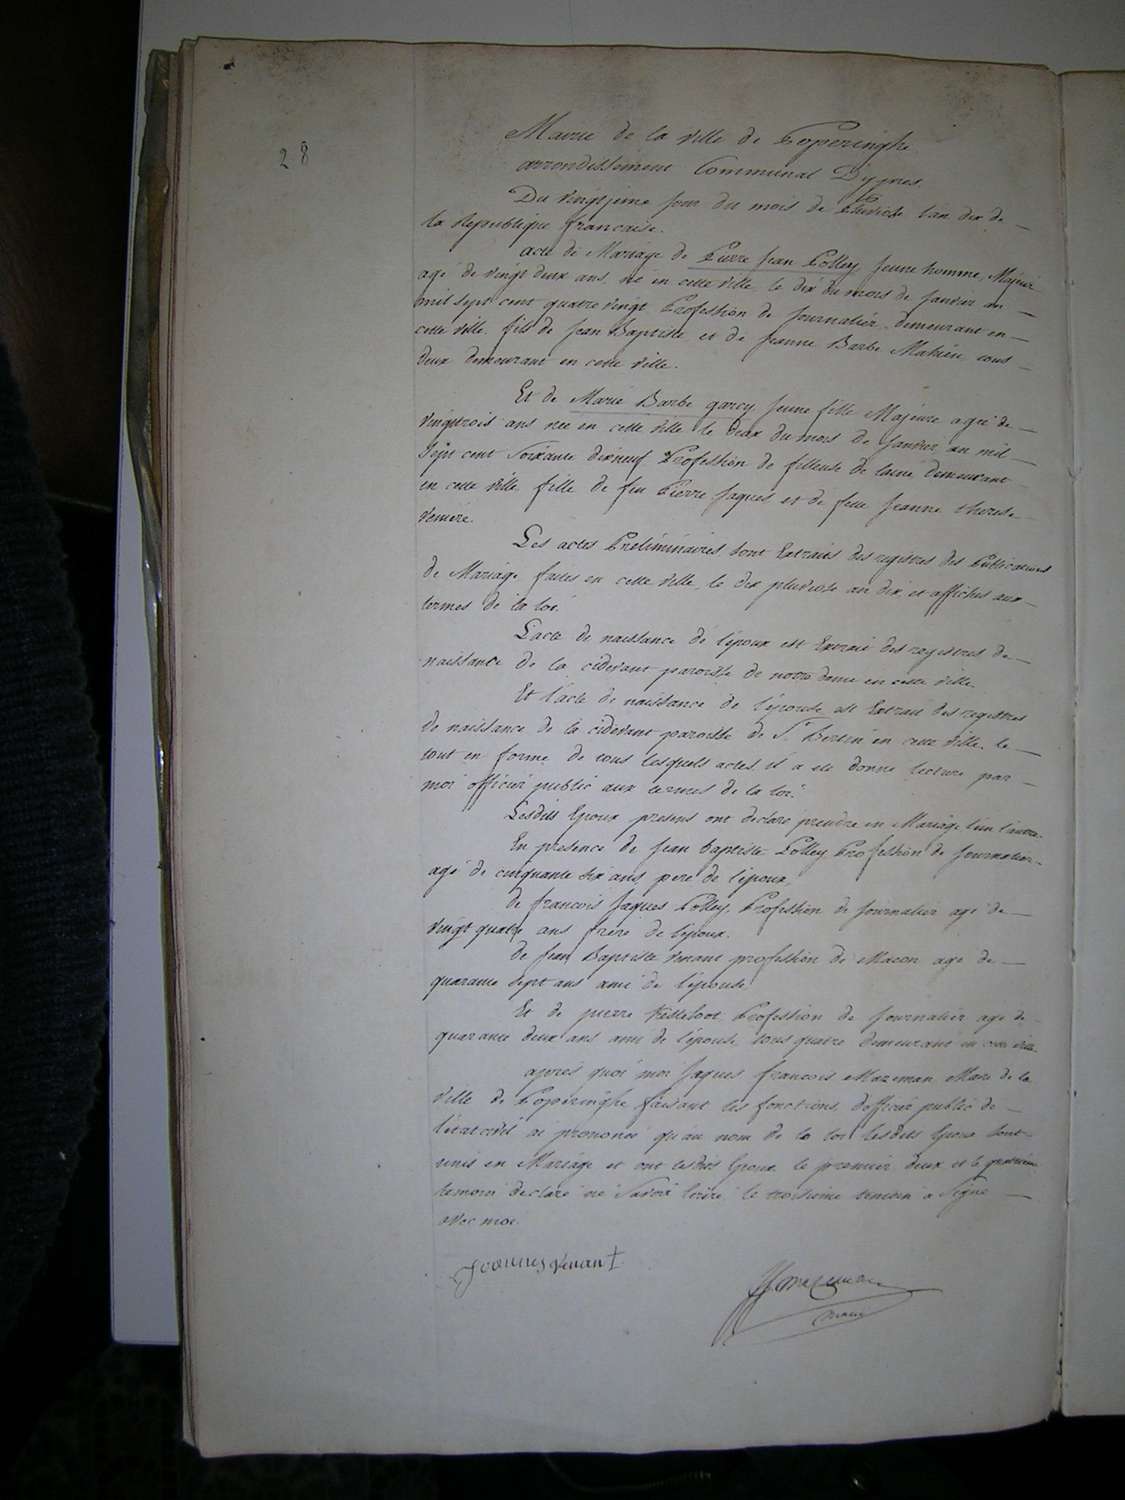 28
Mairie de la ville de Poperinghe
arrondissement Communal Dypres
Du vingtieme jour du mois de Pluviose l'an dix de
la Republique francaise.
acte de Mariage de Pierre Jean Polley Jeune homme Majeur
agé de vingt deux ans, né en cette ville le dix du mois de Janvier an
mil sept cent quatre vingt Profession de Journalier demeurant en
cette ville fils de Jean Baptiste et de Jeanne Barbe Mahieu tous
deux demeurant en cette ville.
Et de Marie Barbe garcy Jeune fille Majeure agée de
vingtrois ans née en cette ville le deux du mois de Janvier an mil
sept cent soixante dixneuf Profession de filleuse de laine demeurant
en cette ville fille de feu Pierre Jaques et de feue Jeanne therese
Les actes Préliminaires sont Extraits des registres des Publications
de Mariage faites en cette ville le dix pluviose an dix et affichés aux
termes de la loi.
L'acte de naissance de l'époux est Extrait des registres de
naissance de la cidevant paroisse de notre dame en cette ville.
Et l'acte de naissance de l'épouse est Extrait des registres
de naissance de la cidevant paroisse de St Bertin en cette ville le
tout en forme de tous lesquels actes il a été donné lecture par
moi officier public aux termes de la loi.
Lesdits Epoux presens ont declaré prendre en Mariage l'un l'autre
En presence de Jean baptiste Polley Profession de Journalier
agé de cinquante six ans pere de l'époux,
de francois Jaques Polley Profession de Journalier agé de
vingt quatre ans frere de l'epoux.
de Jean Baptiste venant profession de Macon agé de
quarante sept ans ami de l'épouse
Et de pierre Kesteloot Profession de Journalier agé de
quarante deux ans ami de l'épouse tous quatre demeurant en cette ville.
après quoi moi Jaques francois Mazeman Maire de la
ville de Poperinghe faisant les fonctions d'officier public de
l'état civil ai prononcé qu'au nom de la loi lesdits Epoux sont
unis en Mariage et ont lesdits Epoux le premier deux et le quatrieme
temoin declaré ne savoir écrire le troisieme temoin a signé
avec moi.
Joannes venant
JfMazeman
maire